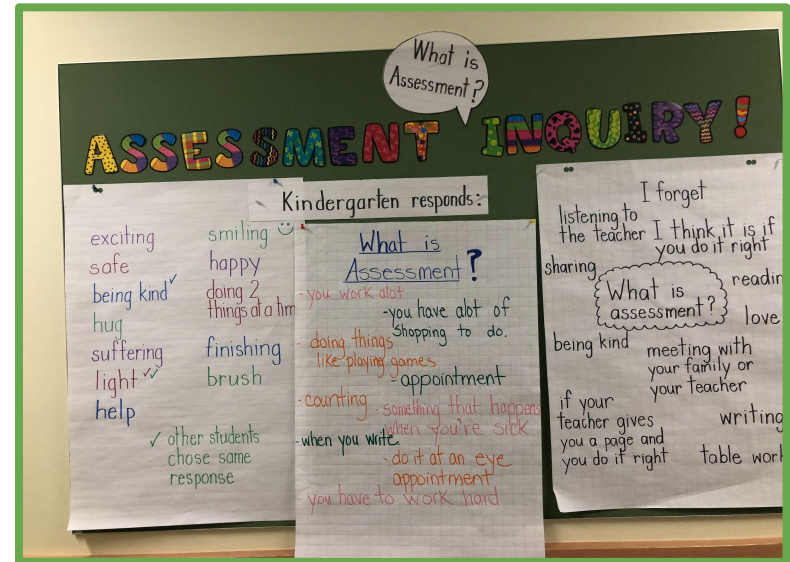 What is
Assessment?
ASSESSMENT INQUIRY!
Kindergarten responds:
exciting
safe
being kind ✓
hug
suffering
light ✓✓
help
smiling ☺
happy
doing 2
things at a tim
finishing
brush
✓ other students
chose same
response
What is
Assessment?
- you work alot
- you have alot of
shopping to do.
- doing things
like playing games
- appointment
- counting
- something that happens
when you're sick
- when you write.
- do it at an eye
appointment
- you have to work hard
I forget
listening to
the teacher
I think it is if
you do it right
sharing
What is
assessment?
readin
love
being kind
meeting with
your family or
your teacher
if your
teacher gives
you a page and
you do it right
writing
table work